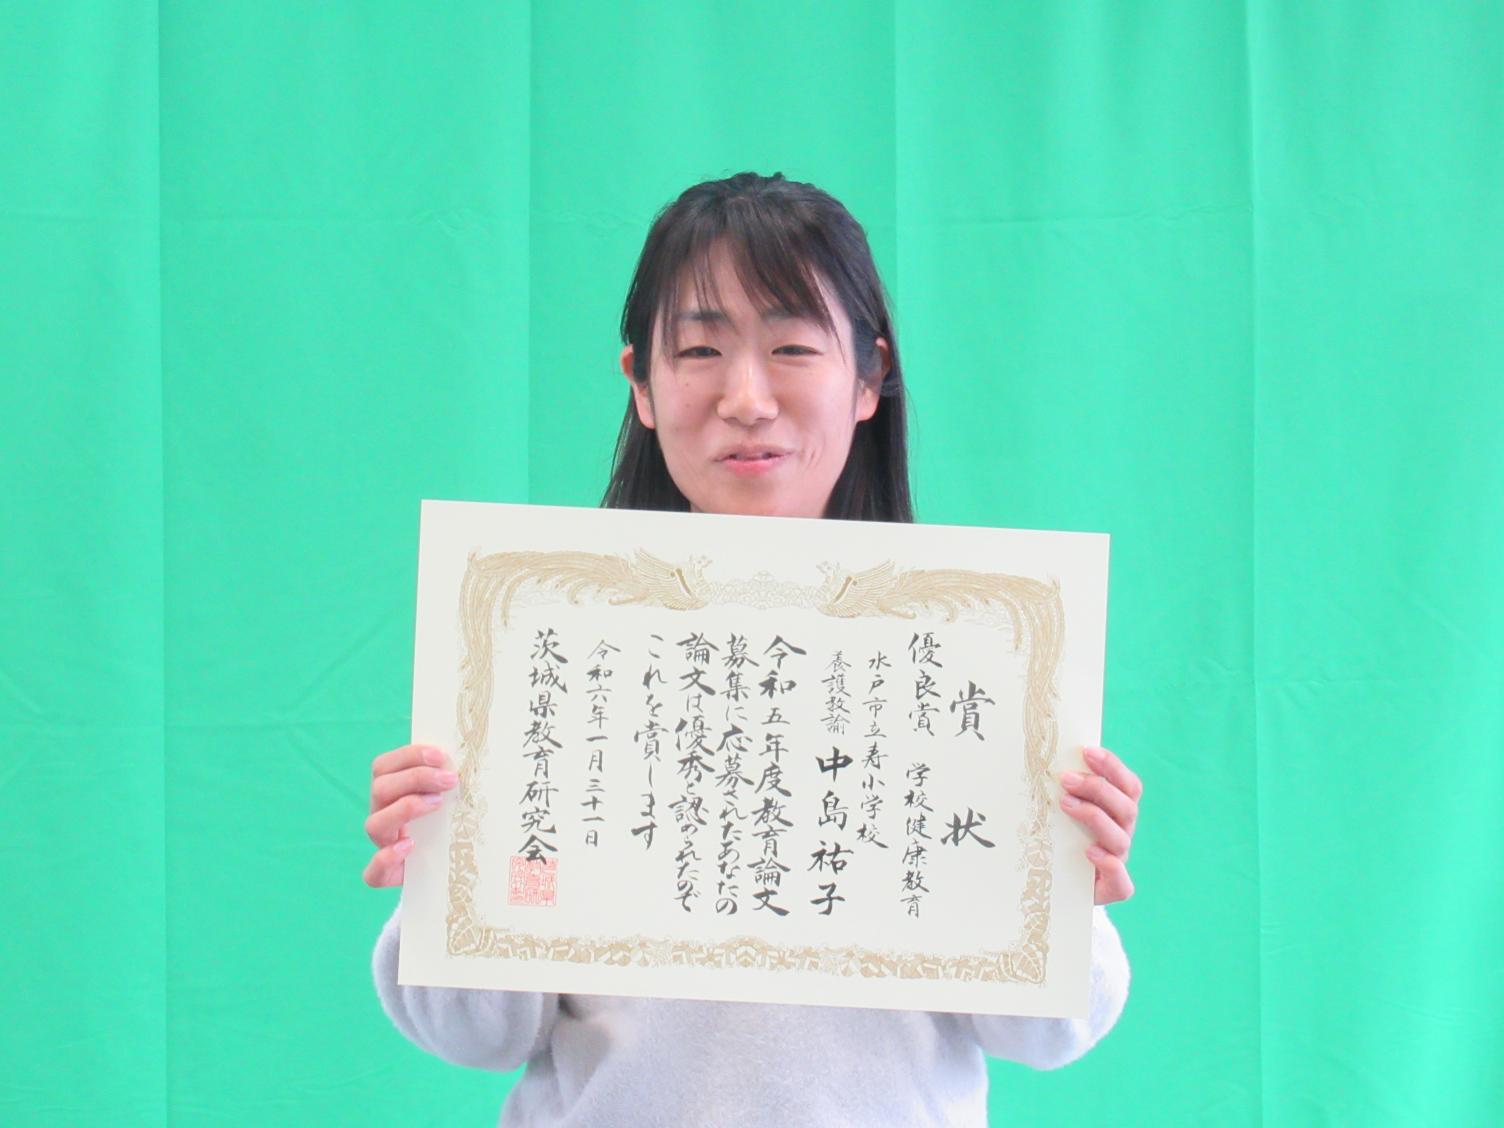 賞状
優良賞 学校健康教育
水戸市立寿小学校
養護教諭 中島祐子
令和五年度教育論文
募集に応募されたあなたの
論文は優秀と認められたので
これを賞します
令和六年一月三十一日
茨城県教育研究会